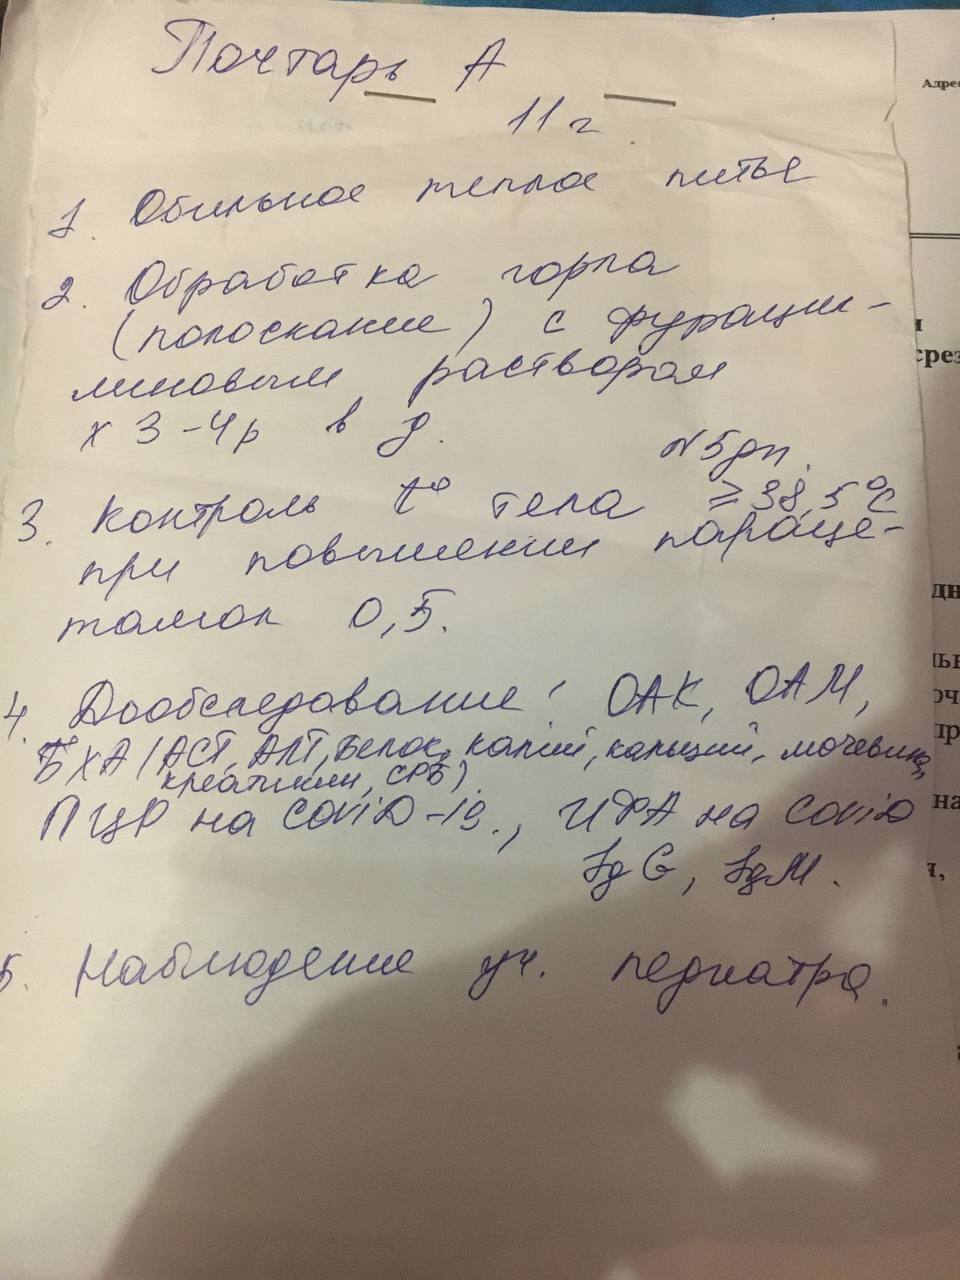 Почтарь А
11 г
1. Обильное теплое питье
2. Обработка горла
(полоскание) с фураци-
линовым раствором
х 3-4р в д.
N5дн.
3. Контроль t° тела ≥38,5°C
при повышении параце-
тамол 0,5.
4. Дообследование: ОАК, ОАМ,
БХА (АСТ, АЛТ, белок, калий, кальций, мочевина,
креатинин, СРБ)
ПЦР на COViD-19., ИФА на COViD
IgG, IgM.
5. Наблюдение уч. педиатра.
Адрес
срез